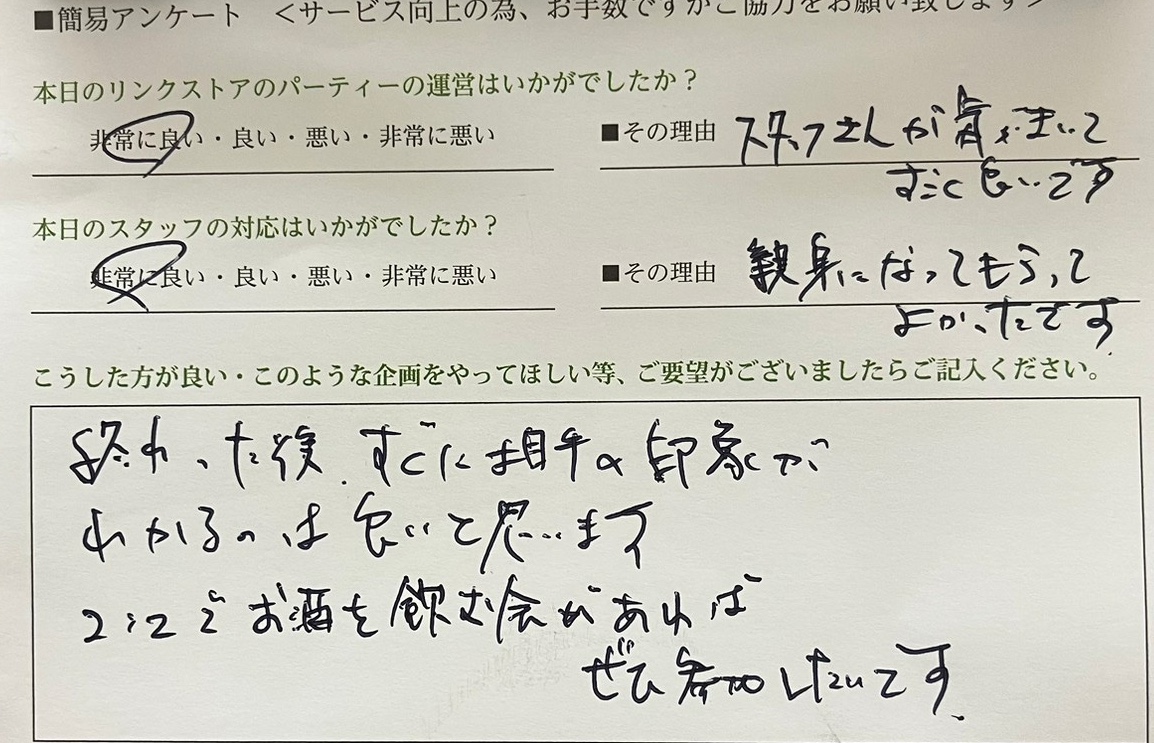 ■簡易アンケート ＜サービス向上の為、お手数ですがご協力をお願い致します＞
本日のリンクストアのパーティーの運営はいかがでしたか？
非常に良い・良い・悪い・非常に悪い ■その理由 スタッフさんが気がきいて
すごく良いです
本日のスタッフの対応はいかがでしたか？
非常に良い・良い・悪い・非常に悪い ■その理由 親身になってもらって
よかったです
こうした方が良い・このような企画をやってほしい等、ご要望がございましたらご記入ください。
終わった後、すぐに相手の印象が
わかるのは良いと思います
2:2でお酒を飲む会があれば
ぜひ参加したいです。